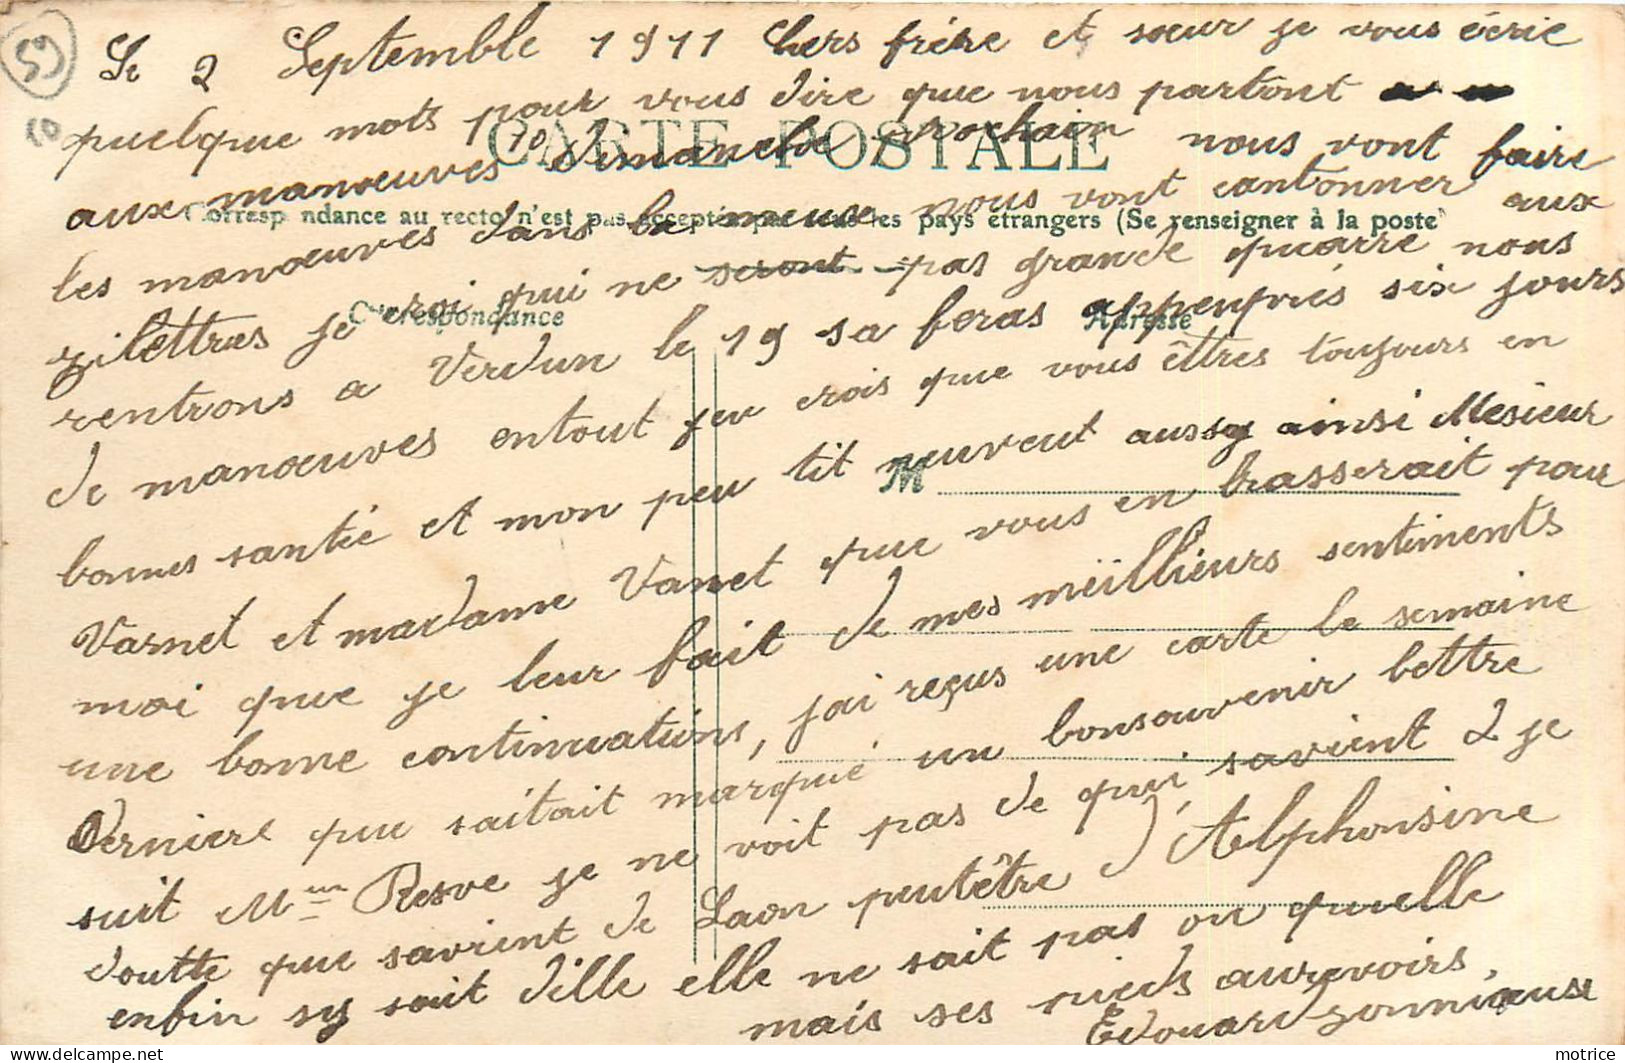 59
10
Le 2 Septemble 1911 Chers frére et sœur je vous écrie
quelque mots pour vous dire que nous partont
CARTE POSTALE
aux manœuvres 10 dimanche prochain nous vont faire
Correspondance au recto n'est pas acceptée par tous les pays étrangers (Se renseigner à la poste)
les manœuvres dans la meuse nous vont cantonner aux
zilettres je croi qui ne seront pas grande quarre nous
Correspondance
Adresse
rentrons a Verdun le 19 sa feras appenprés six jours
de manœuvres entout jeu crois que vous êttres toujours en
M
bonnes santée et mon peu tit neuveut aussy ainsi Mesieur
Varnet et madame Vanet que vous en brasserait pour
moi que je leur fait de mes meiillieurs sentiments
une bonne continuations, jai reçus une carte le semaine
Derniere que saitait marqué un bonsouvenir lettre
suit je ne voit pas de qui, savient 2 je
doutte que savient de Laon peutêtre D'Alphonsine
enfin sy sait d'ille elle ne sait pas ou quelle
mais ses pieds aurevoirs,
Edouard
motrice